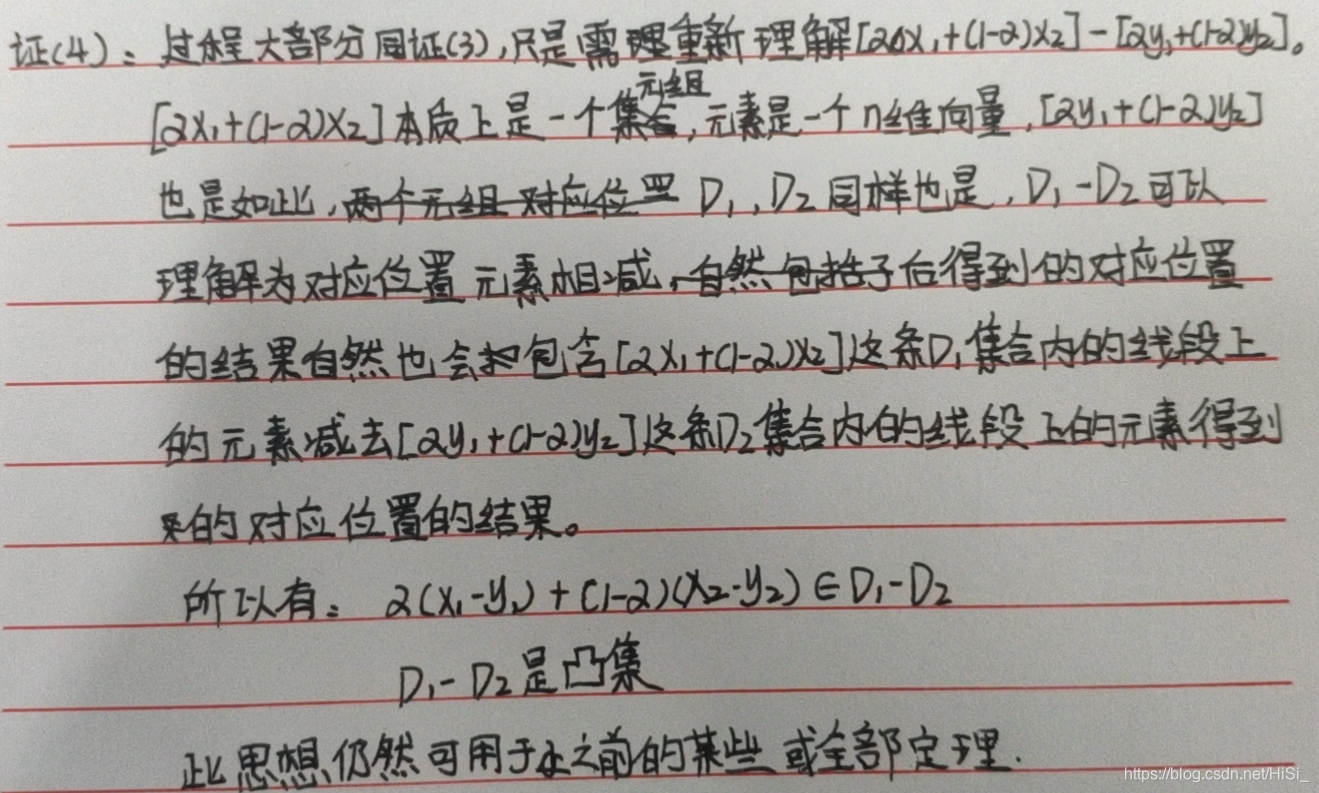 证(4)：过程大部分同证(3),只是需理重新理解[2αx₁+(1-2)x₂]-[2y₁+(1-2)y₂]。
元组
[2x₁+(1-2)x₂]本质上是一个集合,元素是一个n维向量,[2y₁+(1-2)y₂]
也是如此,两个元组对应位置 D₁,D₂同样也是,D₁-D₂可以
理解为对应位置元素相减,自然包括子后得到的对应位置
的结果自然也会包含[2x₁+(1-2)x₂]这条D₁集合内的线段上
的元素减去[2y₁+(1-2)y₂]这条D₂集合内的线段上的元素得到
来的对应位置的结果。
所以有：2(x₁-y₁)+(1-2)(x₂-y₂)∈D₁-D₂
D₁-D₂是凸集
此思想仍然可用于之前的某些或全部定理.
https://blog.csdn.net/HiSi_